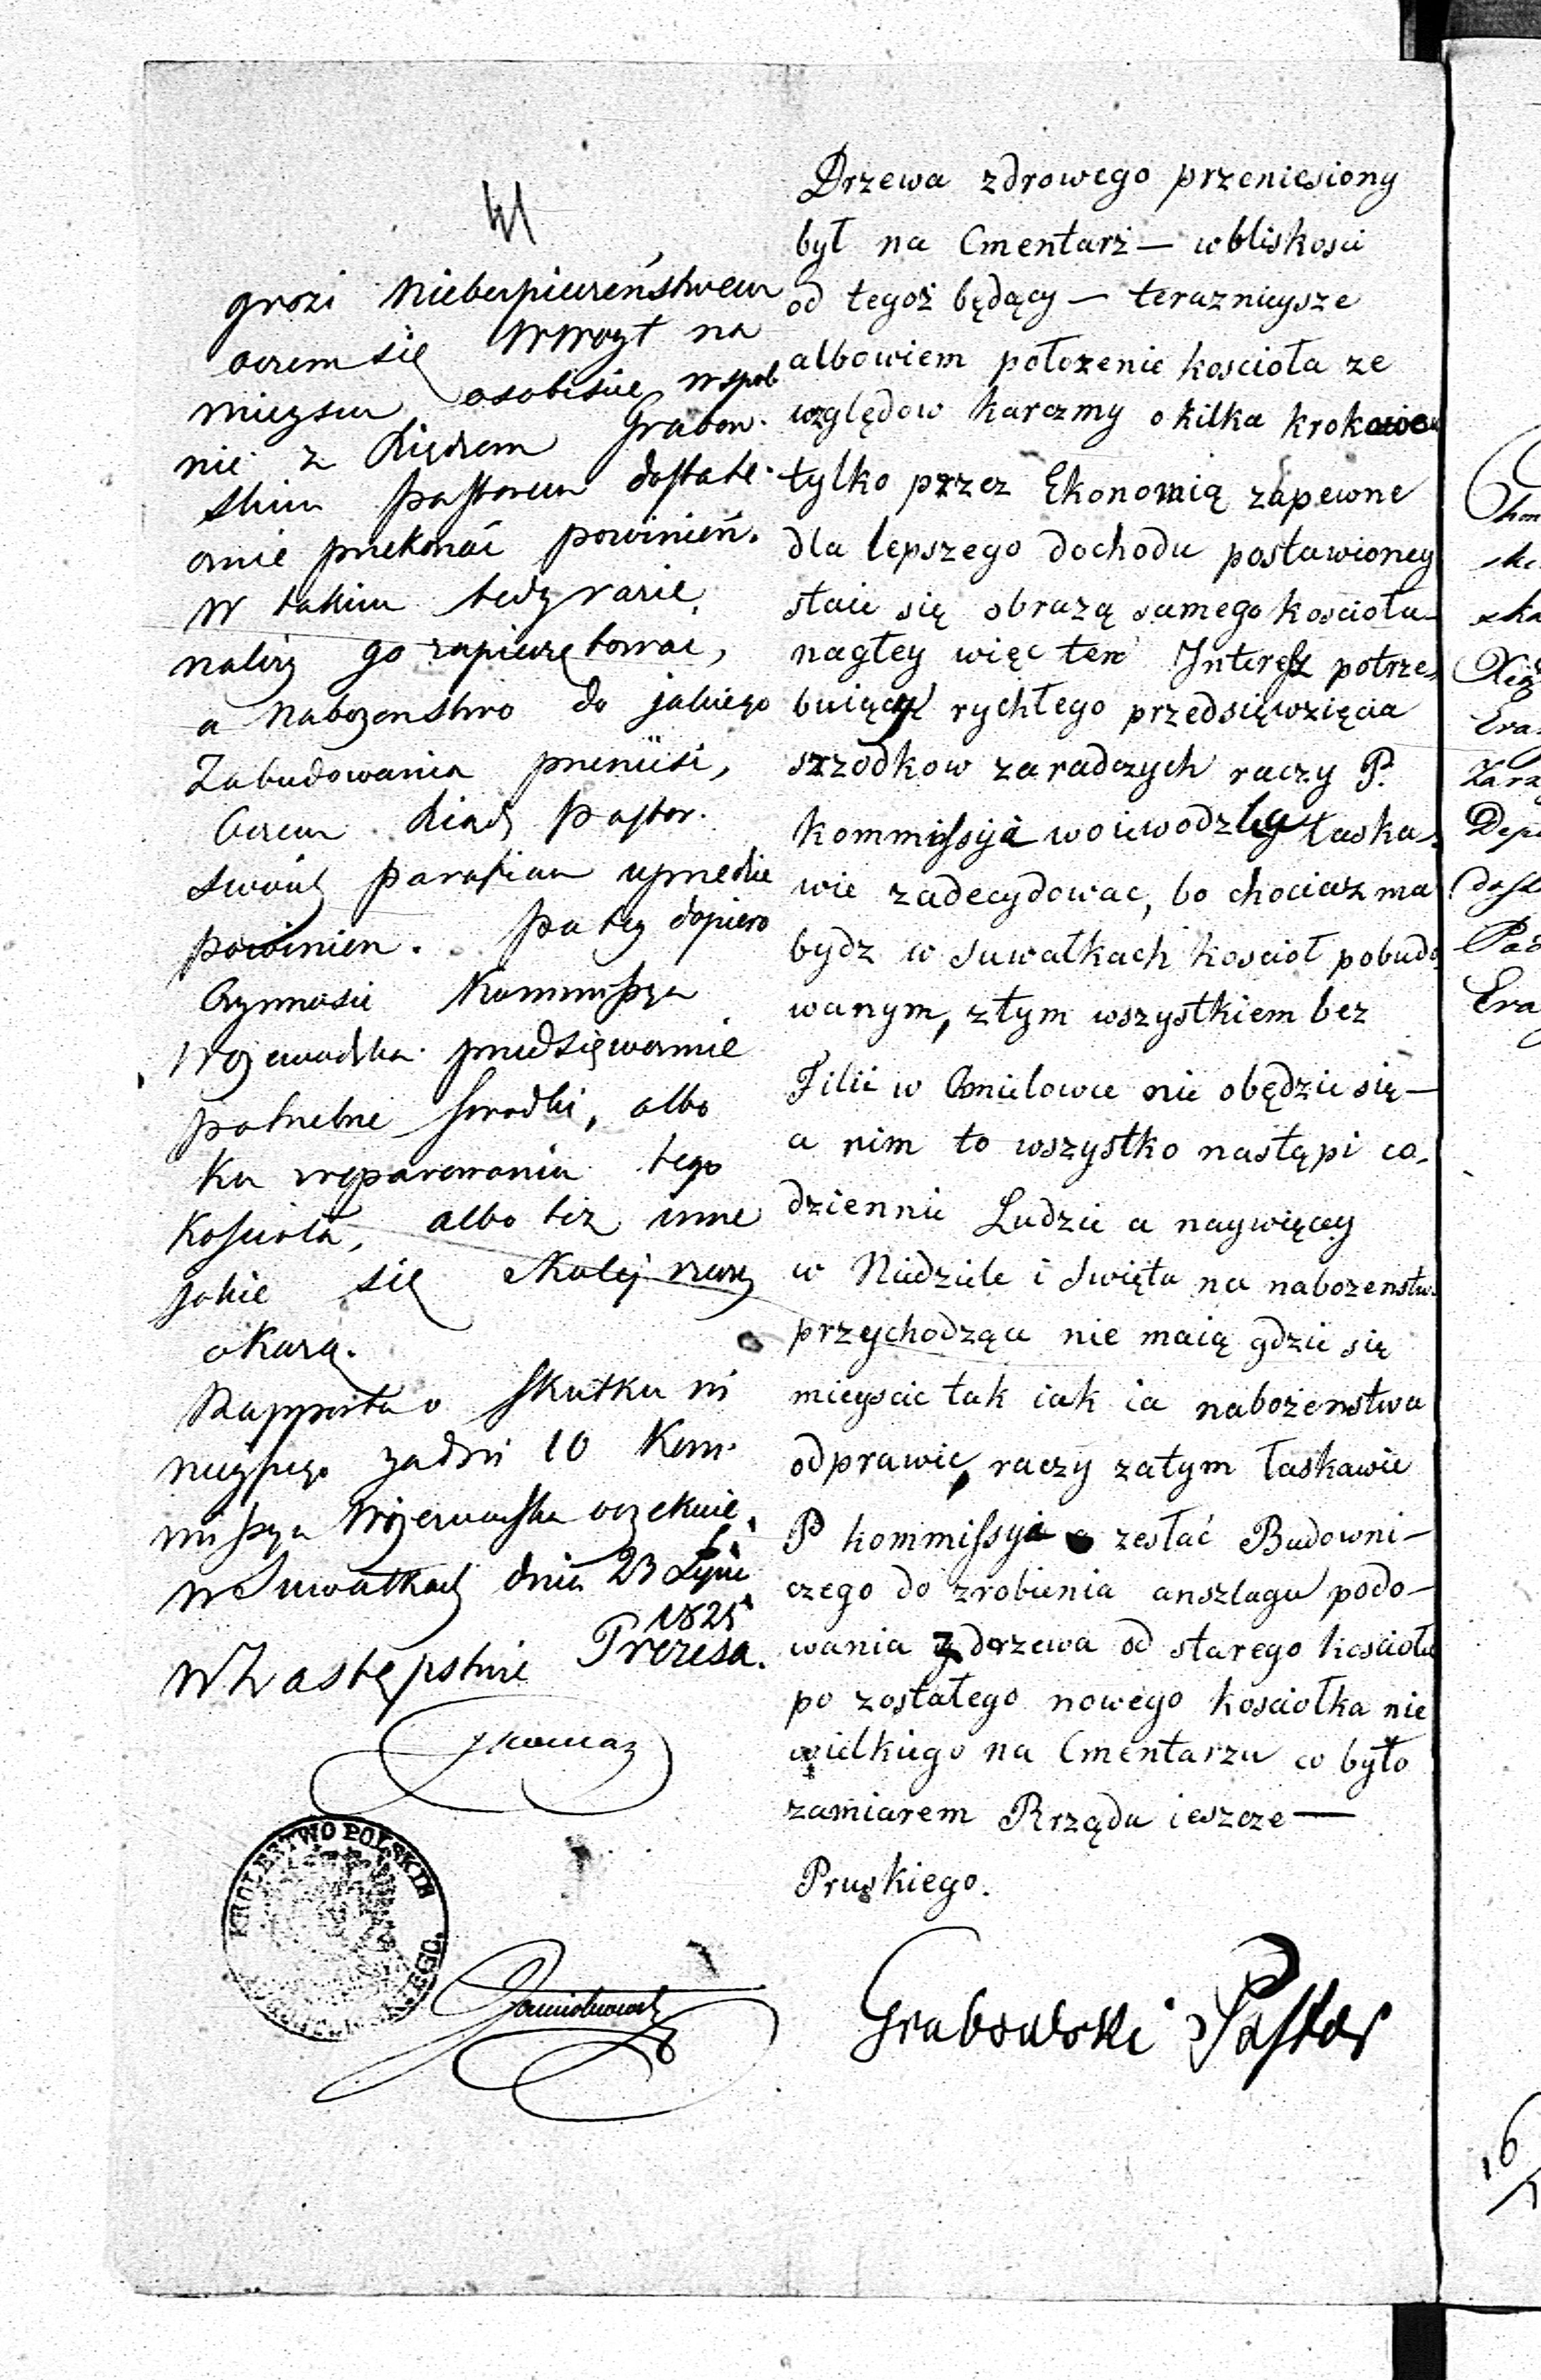 41
grozi Niebespieczeństwem
oczem się W Woyt na
mieyscu osobiście wspol
nie z Xiędzem Grabow.
skim pastorem dostate.
cznie przekonać powinien.
W takim tedy razie,
należy go zapieczętować,
a Nabozenstwo do jakiego
Zabudowania przenieść,
Oczem Xiądz Pastor.
swoich parafian uprzedzić
powinien. Po tey dopiero
Czynności Kommissya
Wojewodzka przedsięweźmie
potrzebne srodki, albo
Ku zreparowaniu tego
Kościoła, albo też inne
jakie się z Kolej rzeczy
okażą.
Rapportu o skutku ni
nieyszego za dni 10 Kom-
missya Wojewodzka oczekuie.
w Suwałkach dnia 23 Lipca
1825
W Zastępstwie Prezesa.
KROLESTWO POLSKIE
Drzewa zdrowego przeniesiony
był na Cmentarż — wbliskosci
od tegoż będący — teraznieysze
albowiem położenie koscioła ze
względow karczmy o kilka krokow
tylko przez Ekonomią zapewne
dla lepszego dochodu postawioney
staie się obrazą samego koscioła
nagłey więc ten Interess potrze,
buiący rychłego przedsięwzięcia
szzodkow zaradczych raczy P.
kommissyia woiewodzka łaska,
wie zadecydowac, bo chociasz ma
bydz w Suwałkach kościoł pobudo
wanym, ztym wszystkiem bez
Filii w Chmielowce nie obędzie się —
a nim to wszystko nastąpi co,
dziennie Ludzie a naywięcey
w Niedziele i Swięta na nabozenstwo
przychodzące nie maią gdzie się
mieyscic tak iak ia nabożenstwa
odprawić, raczy zatym łaskawie
P kommissyia zesłać Budowni —
czego do zrobienia anszlagu podo —
wania z drzewa od starego koscioła
po zostałego nowego kosciołka nie
wielkiego na Cmentarzu co było
zamiarem Rządu ieszcze —
Pruskiego.
Grabowski Pastor